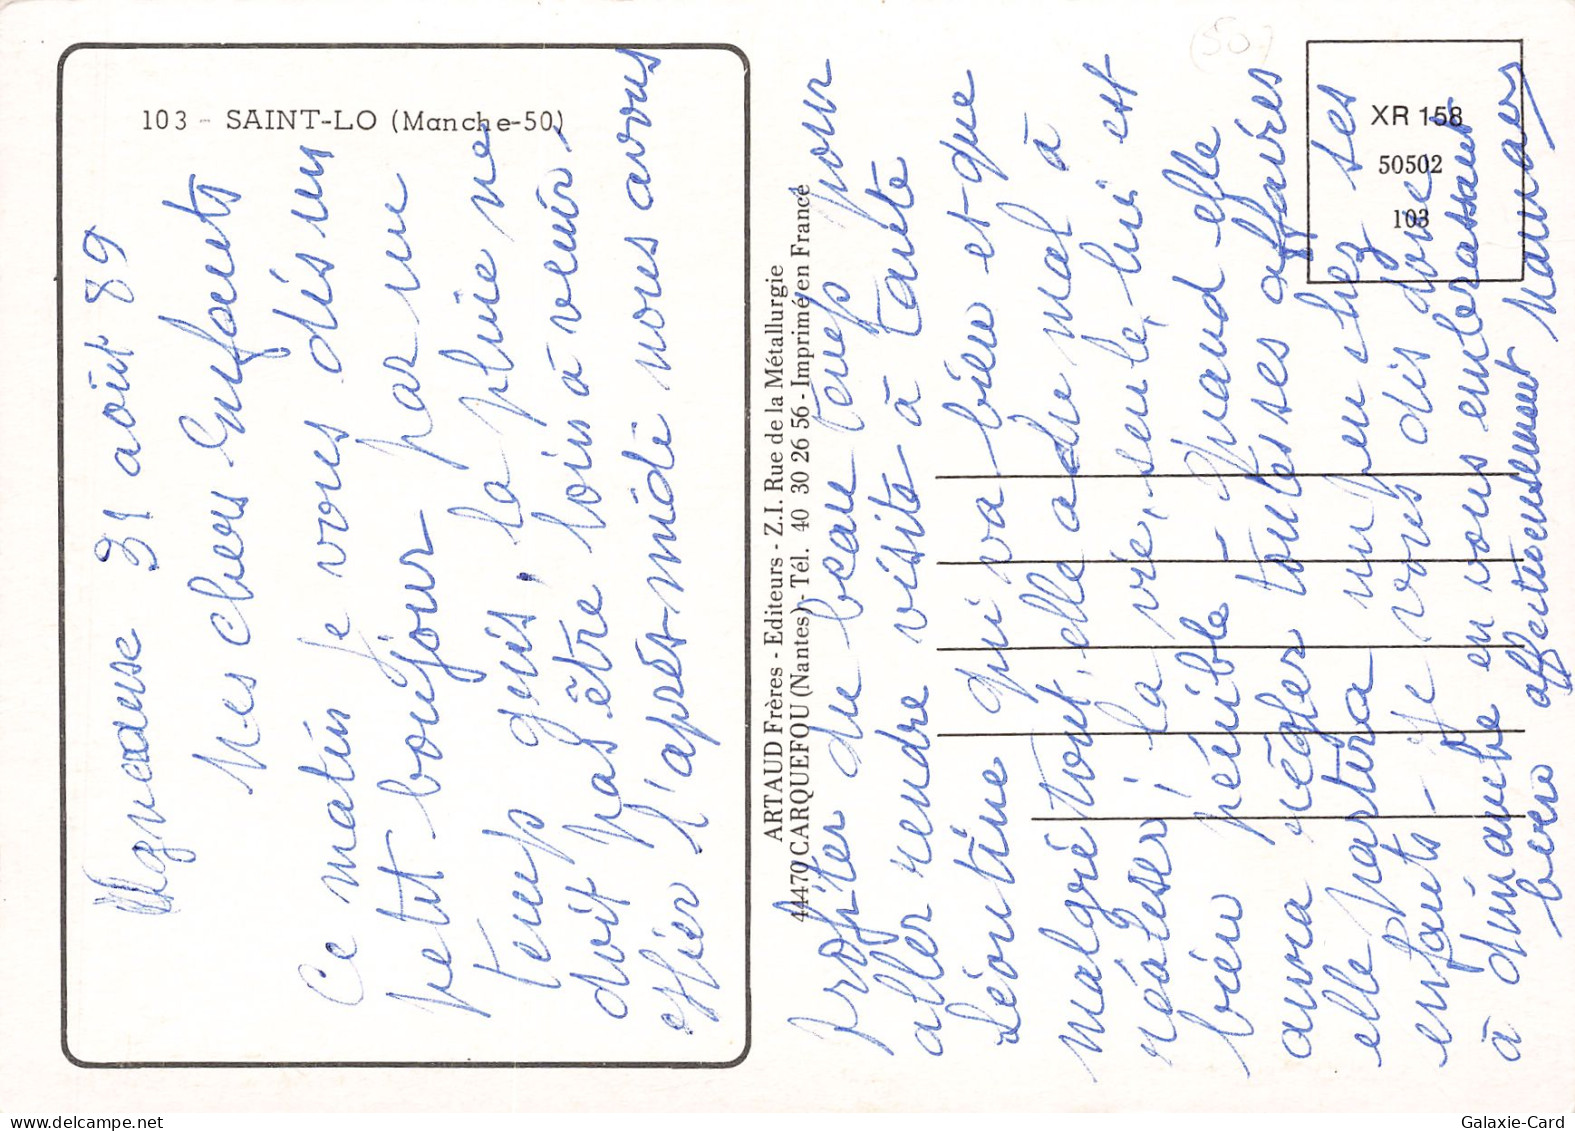 103 - SAINT-LO (Manche-50)
Agneaux se 31 août 89
Mes chers Enfants
Ce matin je vous dis un
petit boujour par un
temps gris, la pluie ne
doit pas être loin à venir,
Hier l'après-midi nous avons
profiter du beau temps pour
aller rendre visite à tante
Léontine qui va bien et que
malgré tout, elle a du mal à
réaliser, la vie, seule, lui est
bien pénible - Quand elle
aura régler toutes ses affaires
elle partira un peu chez ses
enfants - Je vous dis donc
à dimanche en vous embrassant
bien affectueusement Maman
ARTAUD Frères - Editeurs - Z.I. Rue de la Métallurgie
44470 CARQUEFOU (Nantes) - Tél. 40 30 26 56 - Imprimé en France
XR 158
50502
103
(50)
Galaxie-Card